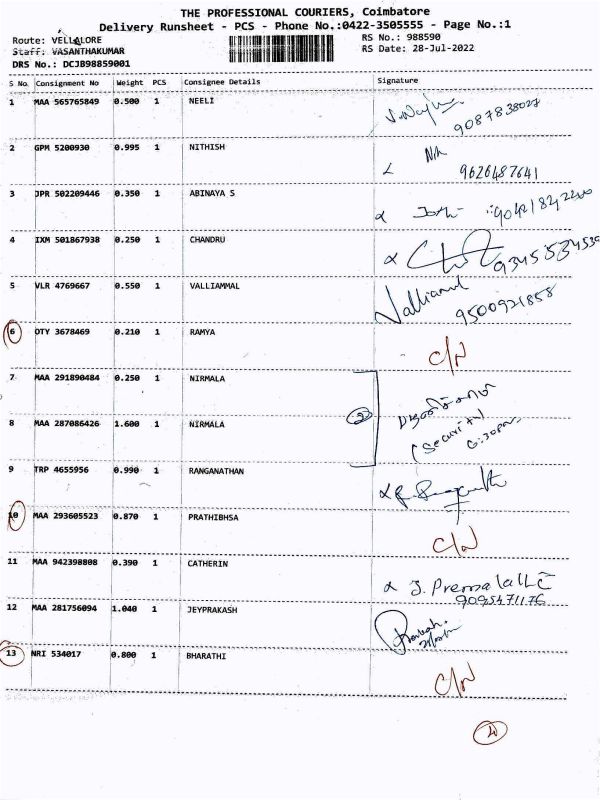 THE PROFESSIONAL COURIERS, Coimbatore
Delivery Runsheet - PCS - Phone No.:0422-3505555 - Page No.:1
Route: VELLALORE RS No.: 988590
Staff: VASANTHAKUMAR RS Date: 28-Jul-2022
DRS No.: DCJB98859001
S No. Consignment No Weight PCS Consignee Details Signature
1 MAA 565765849 0.500 1 NEELI
9087838027
2 GPM 5200930 0.995 1 NITHISH
9626487641
3 JPR 502209446 0.350 1 ABINAYA S
4 IXM 501867938 0.250 1 CHANDRU
5 VLR 4769667 0.550 1 VALLIAMMAL
Valliammal
9500921858
6 OTY 3678469 0.210 1 RAMYA
C/N
7 MAA 291890484 0.250 1 NIRMALA
2
8 MAA 287086426 1.600 1 NIRMALA
(Security)
6:30pm
9 TRP 4655956 0.990 1 RANGANATHAN
10 MAA 293605523 0.870 1 PRATHIBHSA
C/N
11 MAA 942398808 0.390 1 CATHERIN
J. Premalatha
9095471176
12 MAA 281756094 1.040 1 JEYPRAKASH
13 NRI 534017 0.800 1 BHARATHI
C/N